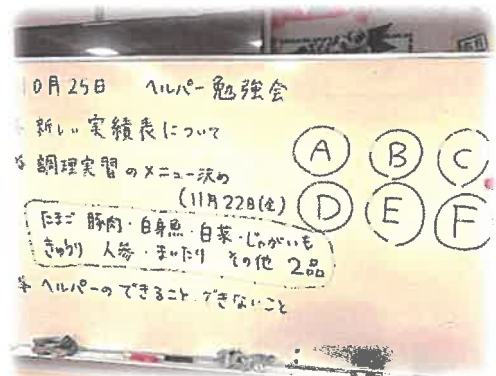 10月25日 ヘルパー勉強会
※ 新しい実績表について
※ 調理実習のメニュー決め
(11月22日(金)
たまご 豚肉・白身魚・白菜・じゃがいも
きゅうり 人参・まいたけ その他 2品
※ ヘルパーのできること できないこと
A B C
D E F